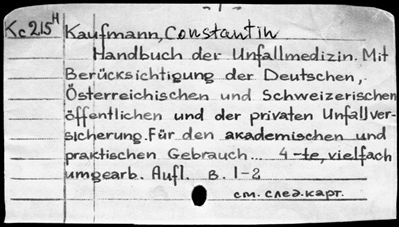 - 1 -
Kc215н Kaufmann, Constantin
Handbuch der Unfallmedizin. Mit
Berücksichtigung der Deutschen,
Österreichischen und Schweizerischen
öffentlichen und der privaten Unfallver-
sicherung. Für den akademischen und
praktischen Gebrauch... 4-te, vielfach
umgearb. Aufl. B. 1-2
см. след. карт.